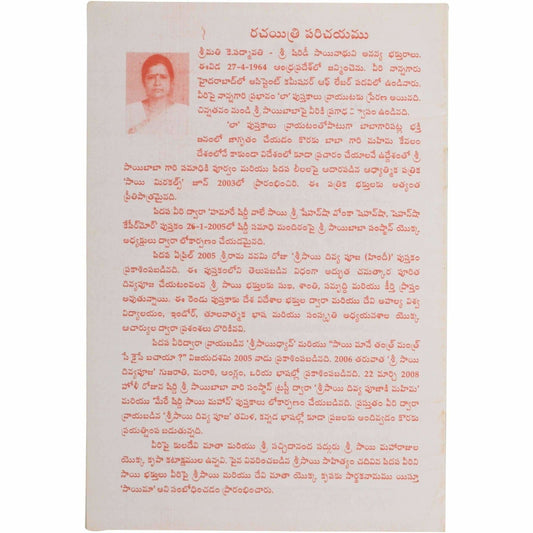 రచయిత్రి పరిచయము
శ్రీమతి కె.పద్మావతి - శ్రీ షిరిడీ సాయినాథుని అనన్య భక్తురాలు.
ఈవిడ 27-4-1964 ఆంధ్రప్రదేశ్‌లో జన్మించెను. వీరి నాన్నగారు
హైదరాబాద్‌లో అసిస్టెంట్ కమీషనర్ ఆఫ్ లేబర్ పదవిలో ఉండినారు.
వీరిపై నాన్నగారి ప్రభావం 'లా' పుస్తకాలు వ్రాయుటకు ప్రేరణ అయినది.
చిన్నతనం నుండి శ్రీ సాయిబాబాపై వీరికి ప్రగాఢ విశ్వాసం ఉండినది.
'లా' పుస్తకాలు వ్రాయటంతోపాటుగా బాబాగారిపట్ల భక్తి
జనంలో జాగృతం చేయడం కొరకు బాబా గారి మహిమ కేవలం
దేశంలోనే కాకుండా విదేశంలో కూడా ప్రచారం చేయాలనే ఉద్దేశంతో శ్రీ
సాయిబాబా గారి సమాధికి పూర్వం మరియు పిదప లీలలపై ఆధారపడిన ఆధ్యాత్మిక పత్రిక
'సాయి మిరకల్స్' జూన్ 2003లో ప్రారంభించిరి. ఈ పత్రిక భక్తులకు అత్యంత
ప్రీతిపాత్రమైనది.
పిదప వీరి ద్వారా 'హమారే షిర్డీ వాలే సాయి శ్రీ
పుస్తకం 26-1-2005లో షిర్డీ సమాధి మందిరంపై శ్రీ సాయిబాబా సంస్థాన్ యొక్క
అధ్యక్షులు ద్వారా లోకార్పణం చేయడమైనది.
పిదప ఏప్రిల్ 2005 శ్రీరామ నవమి రోజు 'శ్రీసాయి దివ్య పూజ (హిందీ)' పుస్తకం
ప్రకాశింపబడినది. ఈ పుస్తకంలోని తెలుపబడిన విధంగా అద్భుత చమత్కార పూరిత
దివ్యపూజ చేయటంవలన శ్రీ సాయి భక్తులకు సుఖ, శాంతి, సమృద్ధి మరియు కీర్తి ప్రాప్తం
అవుతున్నాయి. ఈ రెండు పుస్తకాకు దేశ విదేశాల భక్తుల ద్వారా మరియు దేవి అహల్య విశ్వ
విద్యాలయం, ఇండోర్, తూలనాత్మక భాష మరియు సంస్కృతి అధ్యయనశాల యొక్క
ఆచార్యుల ద్వారా ప్రశంశలు దొరికినవి.
పిదప వీరిద్వారా వ్రాయబడిన 'శ్రీసాయిధ్యాన్' మరియు "సాయి మానే తంత్ర్ మంత్ర్
సే కైసే బచాయా ?" విజయదశమి 2005 నాడు ప్రకాశింపబడినది. 2006 తరువాత 'శ్రీ సాయి
దివ్యపూజ' గుజరాతి, మరాఠి, ఆంగ్లం, ఒరియ భాషల్లో ప్రకాశింపబడినది. 22 మార్చి 2008
హోళీ రోజున షిర్డి శ్రీ సాయిబాబా వారి సంస్థాన్ ట్రస్టీ ద్వారా 'శ్రీసాయి దివ్య పూజాకీ మహిమ'
మరియు 'మేరే షిర్డి సాయి మహాన్' పుస్తకాలు లోకార్పణం చేయబడినవి. ప్రస్తుతం వీరి ద్వారా
వ్రాయబడిన 'శ్రీసాయి దివ్య పూజ' తమిళ, కన్నడ భాషల్లో కూడా ప్రజలకు అందివ్వడం కొరకు
ప్రయత్నింప బడుతున్నది.
వీరిపై కులదేవి మాతా మరియు శ్రీ సచ్చిదానంద సద్గురు శ్రీ సాయి మహారాజుల
యొక్క కృపా కటాక్షములు ఉన్నవి. పైన వివరించబడిన శ్రీ సాయి సాహిత్యం చదివిన పిదప వీరిని
సాయి భక్తులు వీరిపై శ్రీసాయి మరియు దేవి మాతా యొక్క కృపకు సార్థకనామము యిస్తూ
'సాయిమా' అని సంబోధించడం ప్రారంభించారు.